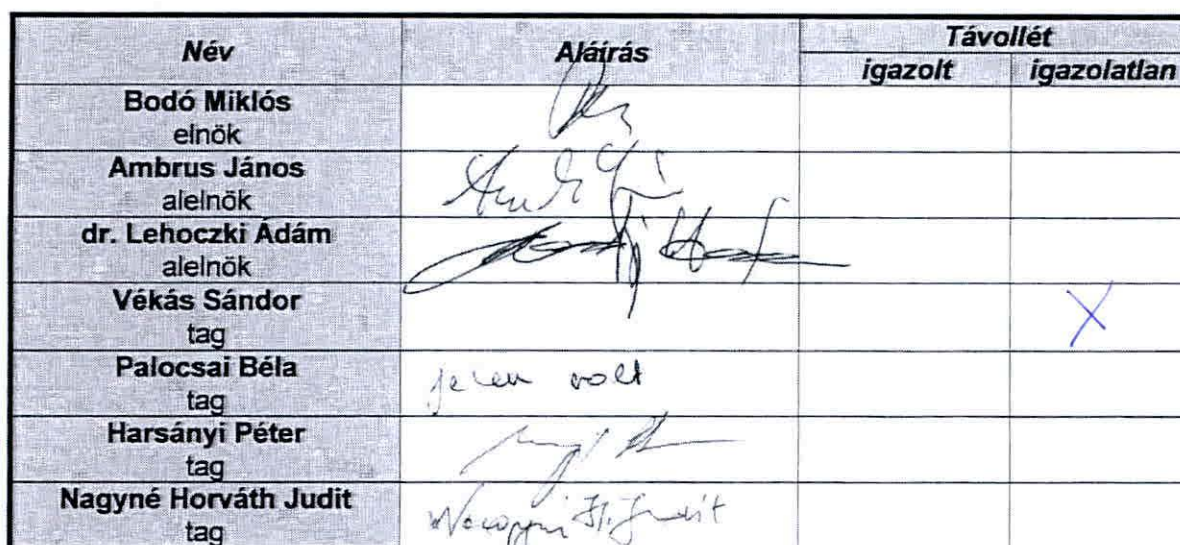 Név Aláírás Távollét
igazolt igazolatlan
Bodó Miklós
elnök
Ambrus János
alelnök
dr. Lehoczki Ádám
alelnök
Végás Sándor
tag X
Palocsai Béla
tag jelen volt
Harsányi Péter
tag
Nagyné Horváth Judit
tag Nagyné H. Judit